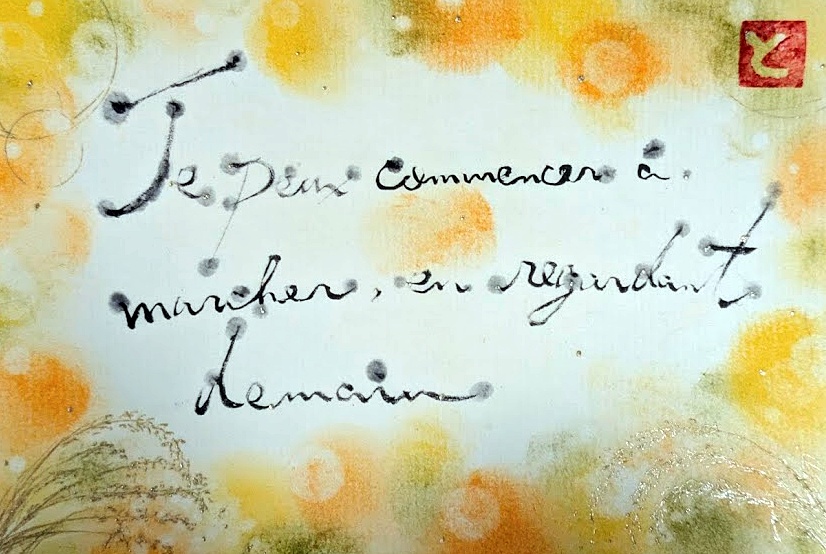 Je peux commencer à
marcher, en regardant
demain
と